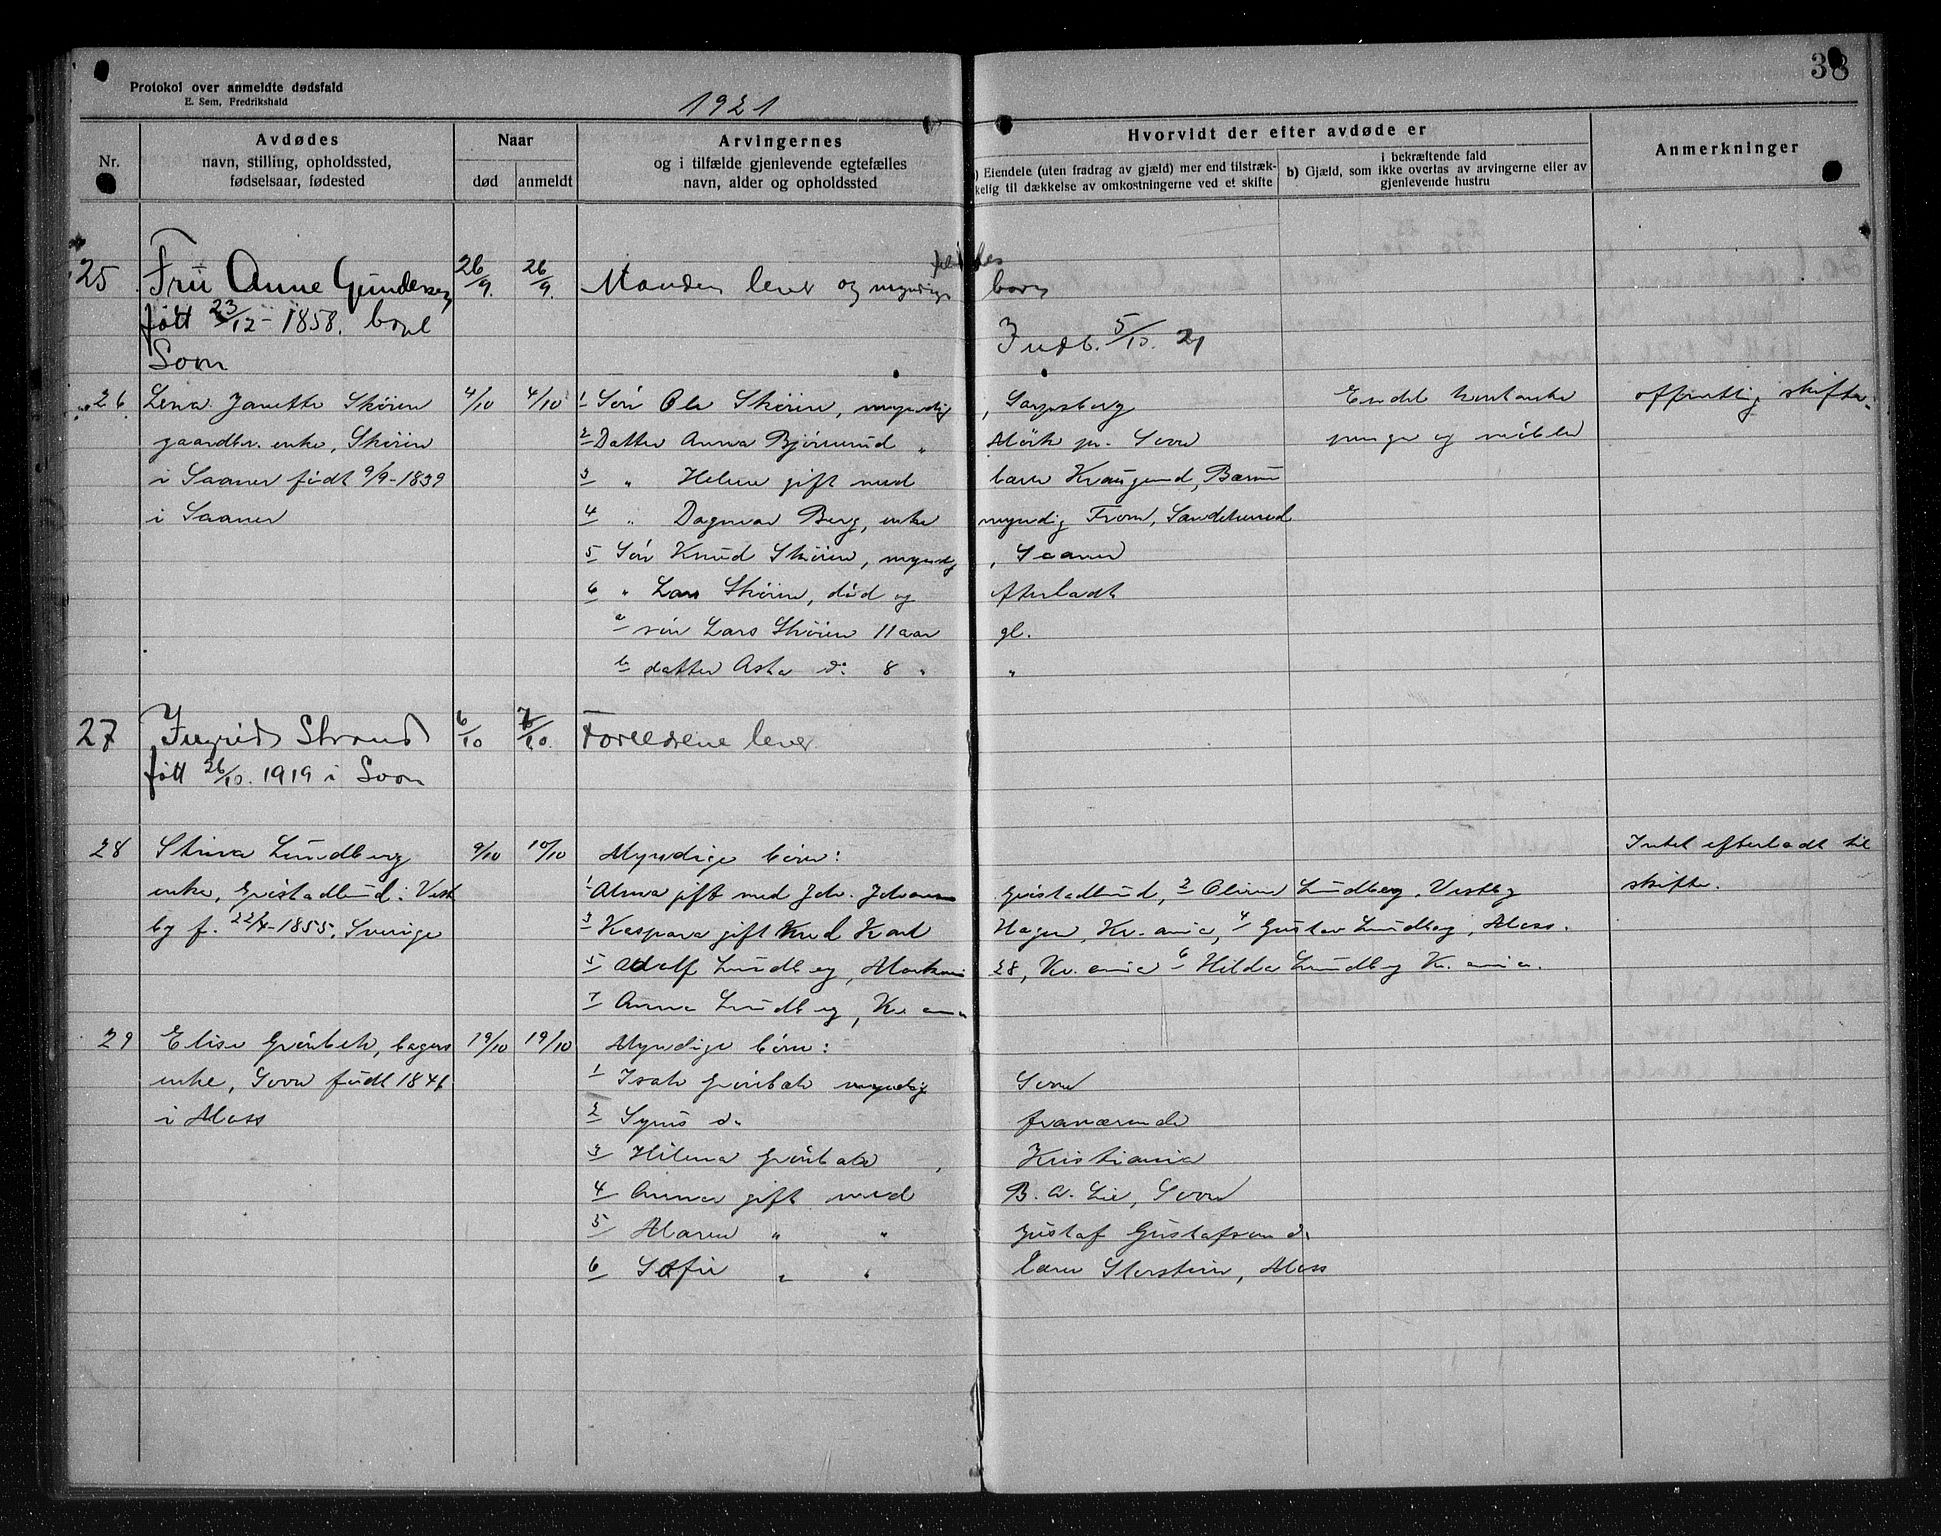 38
Protokol over anmeldte dødsfald
E. Sem, Fredrikshald
1921
Nr.
Avdødes
navn, stilling, opholdssted,
fødselsaar, fødested
Naar
død
anmeldt
Arvingernes
og i tilfælde gjenlevende egtefælles
navn, alder og opholdssted
Hvorvidt der efter avdøde er
a) Eiendele (uten fradrag av gjæld) mer end tilstræk-
kelig til dækkelse av omkostningerne ved et skifte
i bekræftende fald
b) Gjæld, som ikke overtas av arvingerne eller av
gjenlevende hustru
Anmerkninger
25 Fru Anne Gundersen 26/9. 26/9. Manden lever og myndige børn
født 23/12-1858. Soon
Indb. 5/10. 21
26 Lena Janette Skøien 4/10 4/10 1 Søn Ole Skøien, myndig, Sarpsborg Endel kontante offentlig skifte.
gaardbr. enke, Skøien 2 Datter Anna Bjørnerud " Mørk pr. Soon penge og møbler
i Saaner født 9/9-1839 3 " Helene gift med lærer Bærum
i Saaner 4 " Dagmar Berg, enke myndig From, Sandehered
5 Søn Knud Skøien, myndig, Saaner
6 " Lars Skøien, død og efterladt
a søn Lars Skøien 11 aar gl.
b datter Asta do 8 " "
27 Ingrid Strand 6/10 7/10. Forældrene lever
født 26/10. 1919 i Soon
28 Stina Lundberg 9/10 10/10 Myndige børn: Intet efterladt til
enke, Gristadlund i Vest 1 Anna gift med Joh. Johansen Gristadlund, 2 Oline Lundberg, Vestby skifte.
by f. 22/4-1855, Sverige 3 Kaspara gift med Karl Hagen, Kr.ania, 4 Gustav Lundberg, Moss.
5 Adolf Lundberg, 28, Kr.ania 6 Hilda Lundberg Kr.ania.
7 Anna Lundberg, Kr.ania
29 Elise Grønbek, bagers 19/10 19/10 Myndige børn:
enke, Soon født 1846 1 Isak Grønbek myndig Soon
i Moss 2 Syrus do fraværende
3 Hilma Grønbek, Kristiania
4 Anna gift med B. A. Lie, Soon
5 Maren " " Gustaf Gustafson do
6 Sofie " " lærer Storstein, Moss